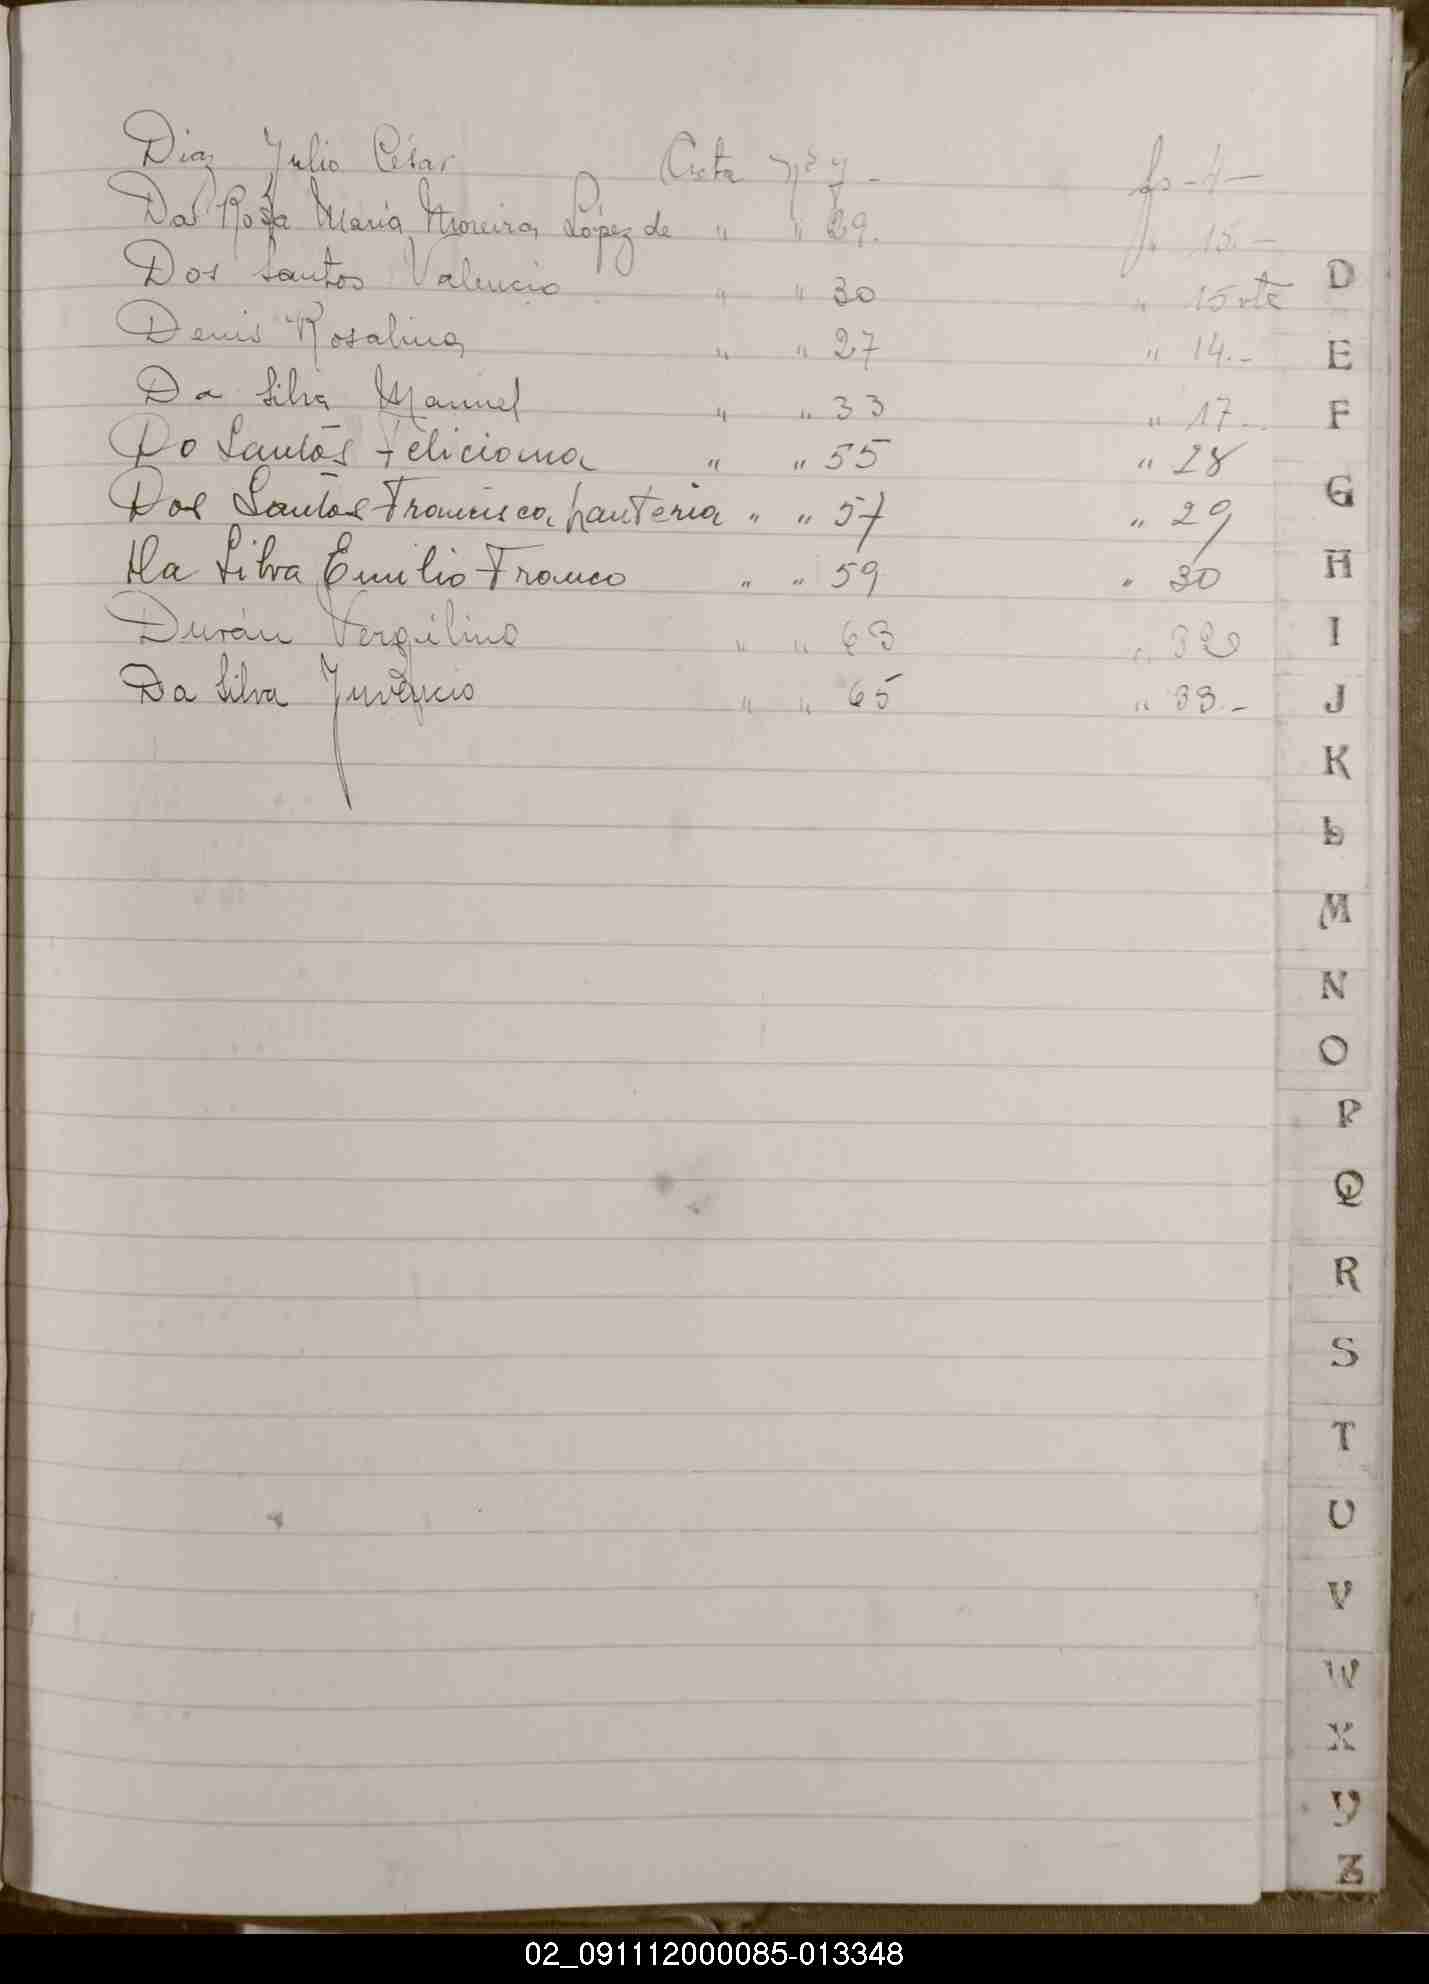 Diaz Julio César Acta Nº 7 - fs - 4 -
Da Rosa Maria Moreira López de " " 29. fs. 15. -
Dos Santos Valencio " " 30 " 15 vta
Denis Rosalina " " 27 " 14. -
Da Silva Manuel " " 33 " 17 -
Do Santos Feliciana " " 55 " 28
Dos Santos Francisca " " 57 " 29
Da Silva Emilio Franco " " 59 " 30
Durán Vergilino " " 63 " 32
Da Silva Juvencio " " 65 " 33. -
D
E
F
G
H
I
J
K
L
M
N
O
P
Q
R
S
T
U
V
W
X
Y
Z
02_091112000085-013348